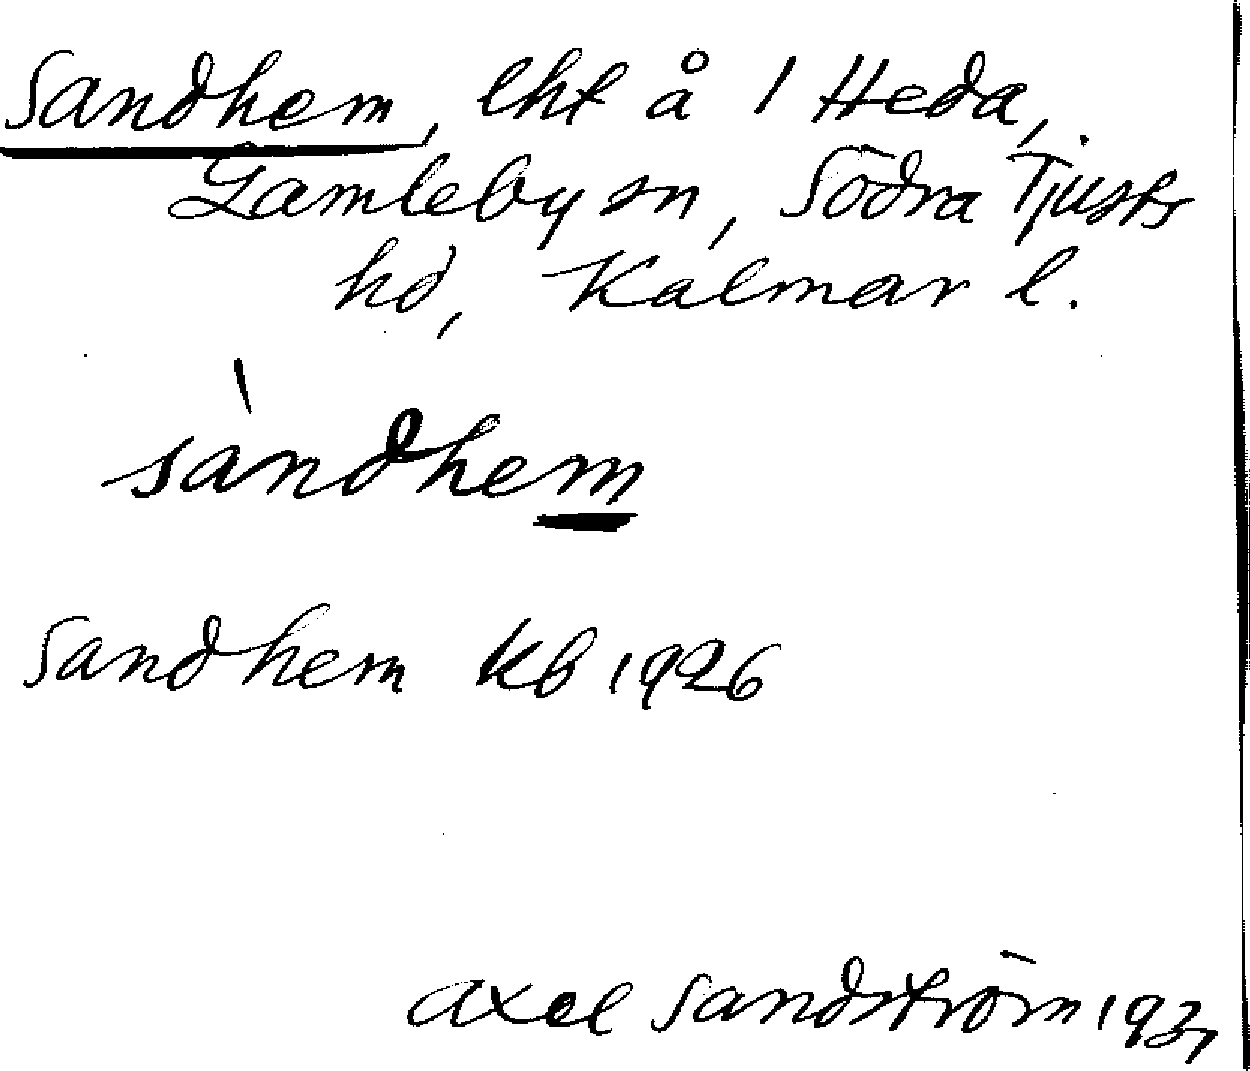 Sandhem, lht å 1 Heda,
Gamleby sn, Södra Tjusts
hd, Kalmar l.
sàndhem
Sandhem Kb 1926
Axel Sandström 1937